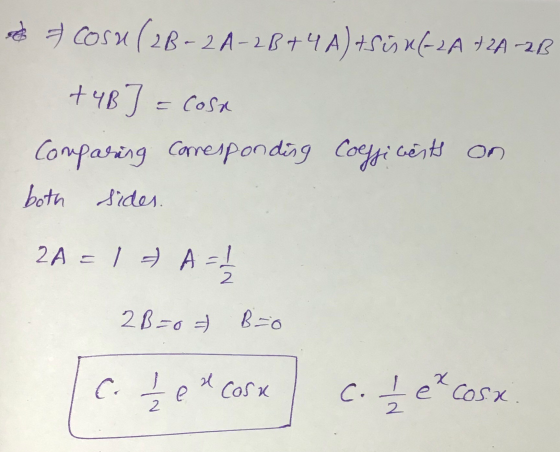 ⇒ Cosx (2B-2A-2B+4A)+Sinx(-2A+2A-2B
+4B] = Cosx
Comparing Corresponding Coefficients on
both sides.
2A = 1 ⇒ A = 1/2
2B=0 ⇒ B=0
C. 1/2 e^x Cosx C. 1/2 e^x Cosx.